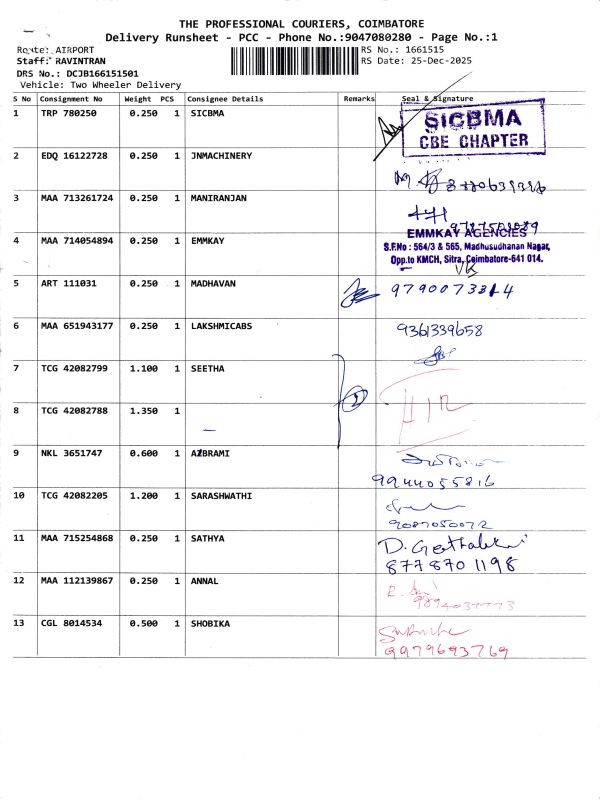 THE PROFESSIONAL COURIERS, COIMBATORE
Delivery Runsheet - PCC - Phone No.:9047080280 - Page No.:1
Route: AIRPORT RS No.: 1661515
Staff: RAVINTRAN RS Date: 25-Dec-2025
DRS No.: DCJB166151501
Vehicle: Two Wheeler Delivery
S No Consignment No Weight PCS Consignee Details Remarks Seal & Signature
1 TRP 780250 0.250 1 SICBMA SICBMA
CBE CHAPTER
2 EDQ 16122728 0.250 1 JNMACHINERY
3 MAA 713261724 0.250 1 MANIRANJAN
4 MAA 714054894 0.250 1 EMMKAY EMMKAY AGENCIES
S.F.No : 564/3 & 565, Madhusudhanan Nagar,
Opp.to KMCH, Sitra, Coimbatore-641 014.
5 ART 111031 0.250 1 MADHAVAN
6 MAA 651943177 0.250 1 LAKSHMICABS 9361339658
7 TCG 42082799 1.100 1 SEETHA
8 TCG 42082788 1.350 1
9 NKL 3651747 0.600 1 AZBRAMI
9944055816
10 TCG 42082205 1.200 1 SARASHWATHI
9087050072
11 MAA 715254868 0.250 1 SATHYA
8778701198
12 MAA 112139867 0.250 1 ANNAL
13 CGL 8014534 0.500 1 SHOBIKA
9979693769